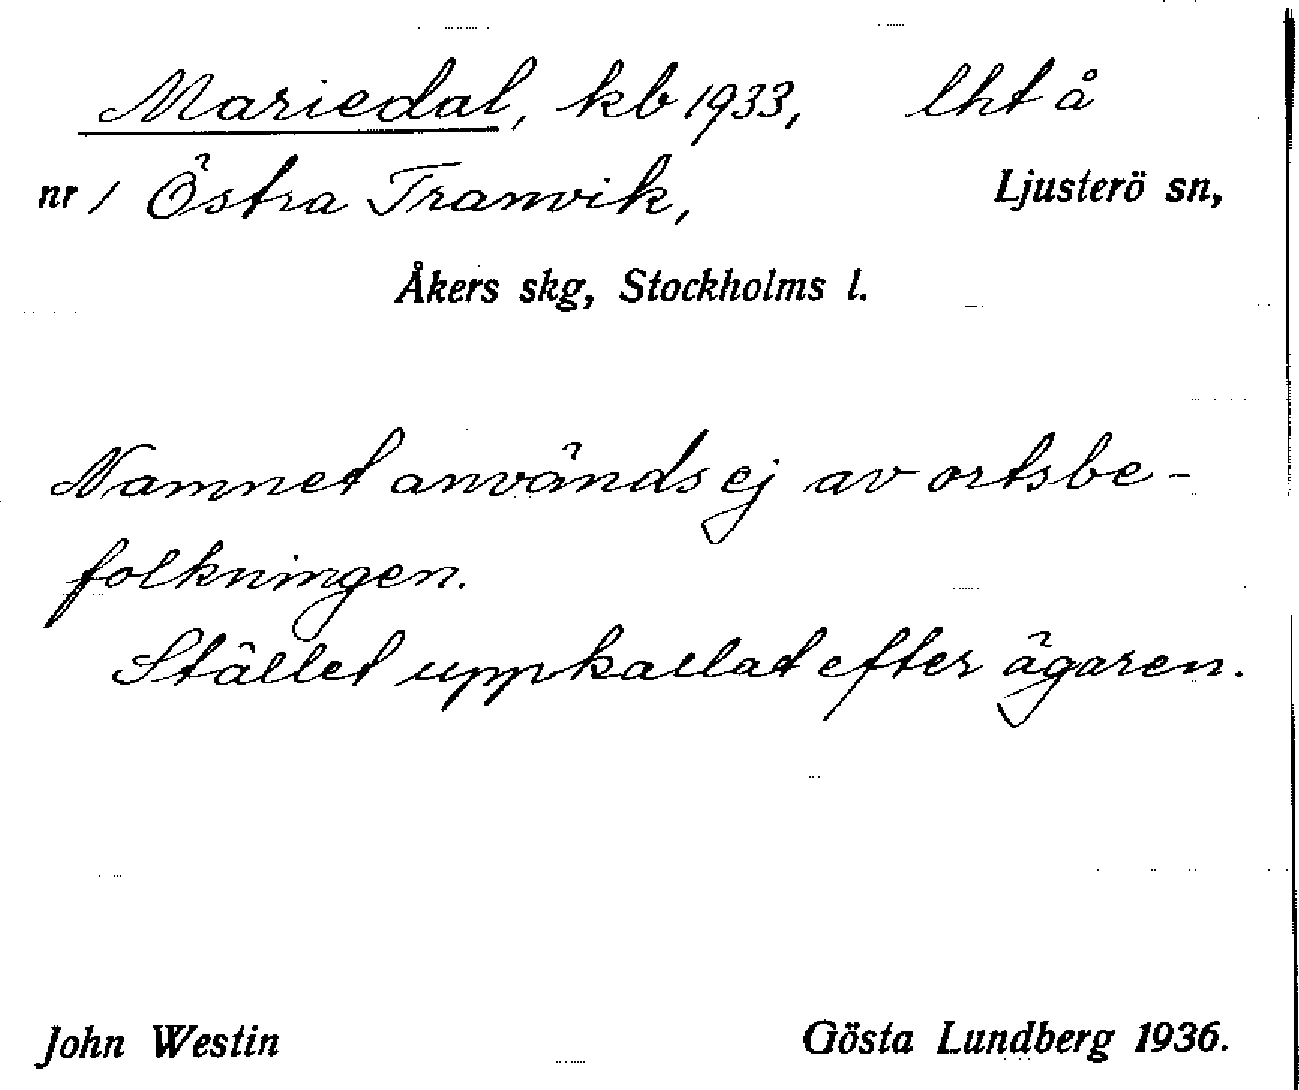 Mariedal, kb 1933, lht å
nr 1 Östra Tranvik, Ljusterö sn,
Åkers skg, Stockholms l.
Namnet används ej av ortsbe-
folkningen.
Stället uppkallat efter ägaren.
John Westin Gösta Lundberg 1936.